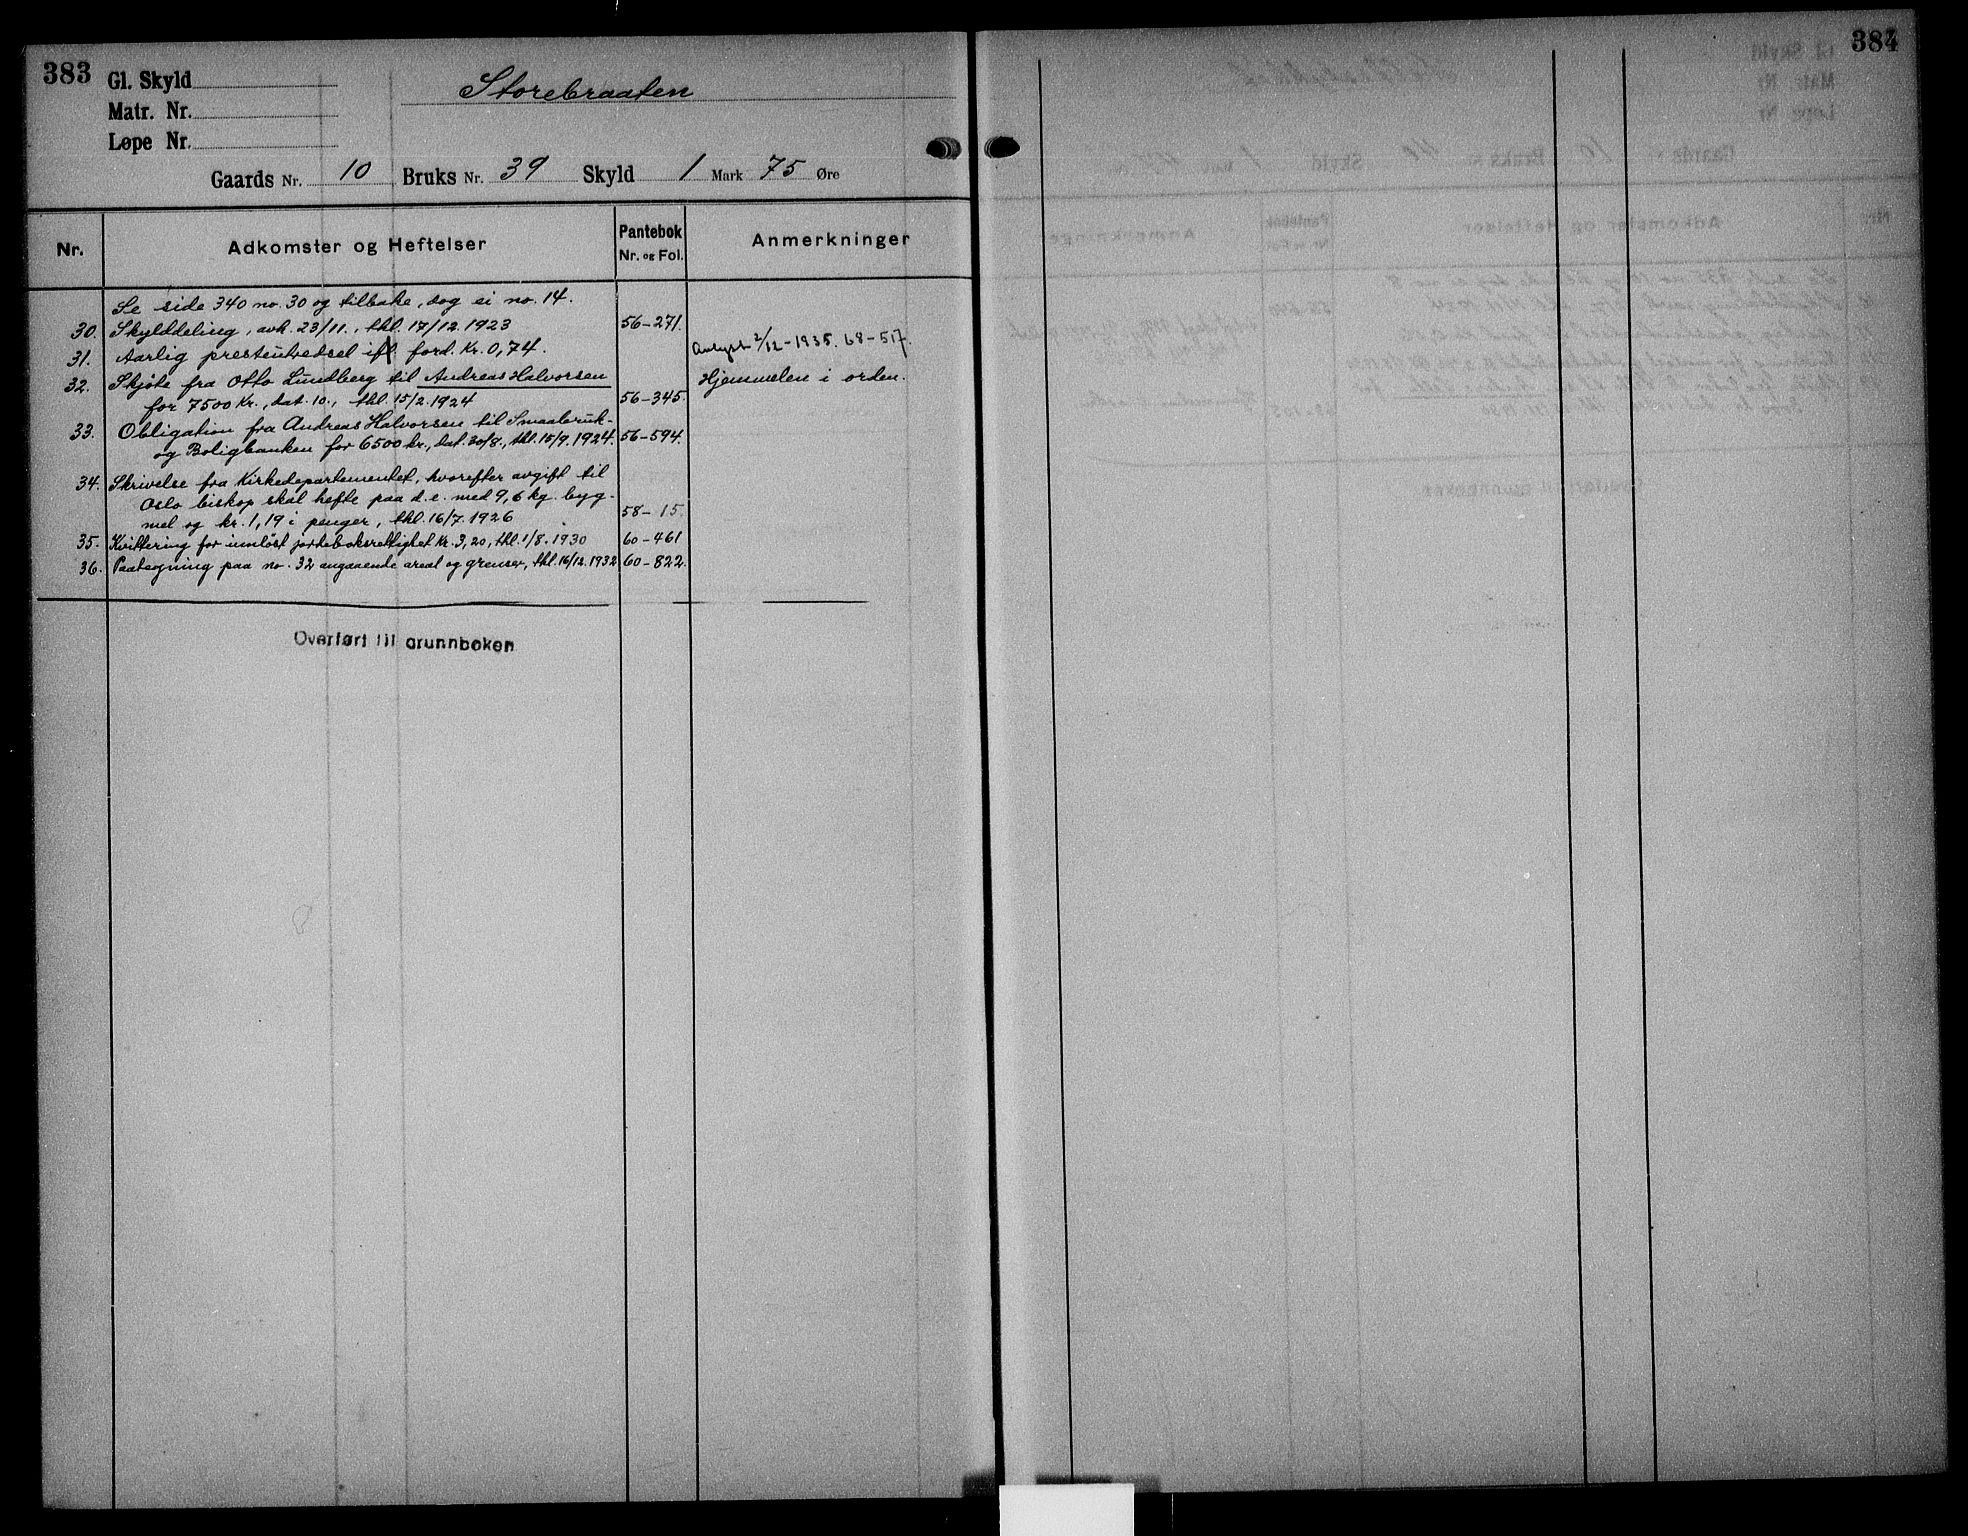 383
Gl. Skyld
Matr. Nr.
Løpe Nr.
Storebraaten
Gaards Nr. 10 Bruks Nr. 39 Skyld 1 Mark 75 Øre
Nr. Adkomster og Heftelser Pantebok Nr. og Fol. Anmerkninger
Se side 340 no. 30 og tilbake, dog ei no. 14.
30. Skylddeling, avh. 23/11., thl. 17/12. 1923 56-271.
31. Aarlig presteutredsel ifl. ford. Kr. 0,74. Avlyst 2/12-1935. 68-517.
32. Skjøte fra Otto Lundberg til Andreas Halvorsen Hjemmelen i orden.
for 7500 Kr., dat. 10., thl. 15/2. 1924 56-345.
33. Obligation fra Andreas Halvorsen til Smaabruk-
og Boligbanken for 6500 kr., dat. 30/8., thl. 15/9. 1924. 56-594.
34. Skrivelse fra Kirkedepartementet, hvorefter avgift til
Oslo biskop skal hefte paa d.e. med 9,6 kg. byg-
mel og kr. 1,19 i penger, thl. 16/7. 1926 58- 15.
35. Kvittering for innløst jordeboksrettighet Kr. 3,20, thl. 1/8. 1930 60-461
36. Paategning paa no. 32 angaaende areal og grenser, thl. 16/12. 1932 60-822.
Overført til grunnboken